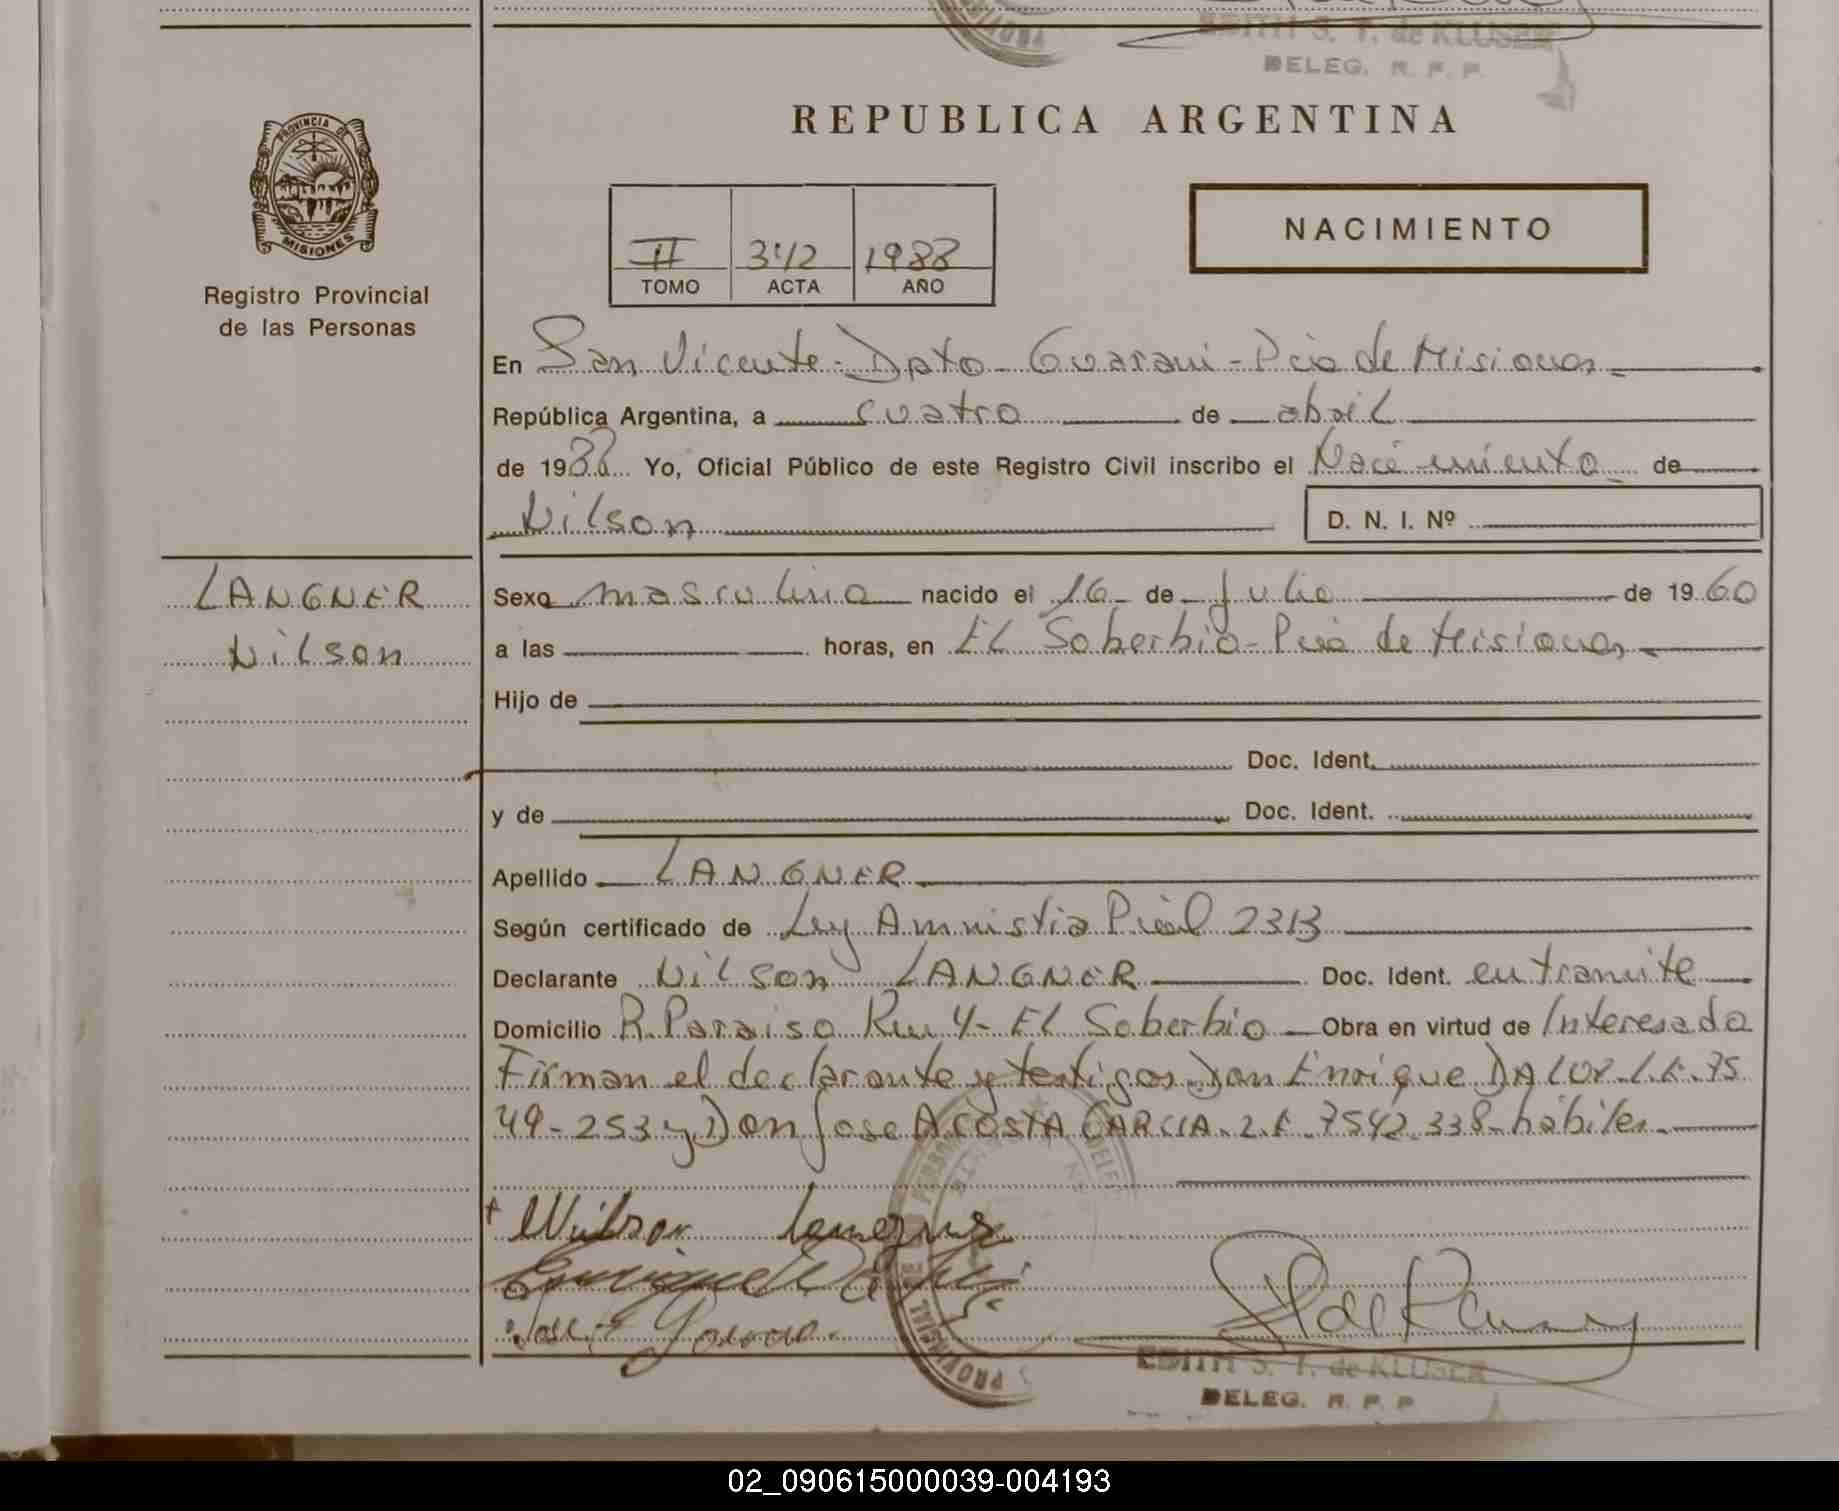 EDITH S. T. de KLUSER
DELEG. R. P. P.
PROVINCIA DE
MISIONES
Registro Provincial
de las Personas
REPUBLICA ARGENTINA
II 342 1988
TOMO ACTA AÑO
NACIMIENTO
En San Vicente - Dpto - Guarani - Pcia de Misiones -
República Argentina, a cuatro de abril
de 1988 Yo, Oficial Público de este Registro Civil inscribo el Naci miento de
Nilson D. N. I. Nº
LANGNER
Nilson
Sexo masculino nacido el 16 de Julio de 1960
a las horas, en EL Soberbio - Pcia de Misiones -
Hijo de
Doc. Ident.
y de Doc. Ident.
Apellido LANGNER
Según certificado de Ley Amnistia Pcial 2313
Declarante Nilson LANGNER Doc. Ident. en tramite
Domicilio P. Paraiso Km 4 - EL Soberbio Obra en virtud de Interesado
Firman el declarante y testigos Don Enrique L.E. 75
49-253 y Don Jose ACOSTA GARCIA - L.E. 7542.338 - hábiles -
PROVINCIAL
EDITH S. T. de KLUSER
DELEG. R. P. P
02_090615000039-004193